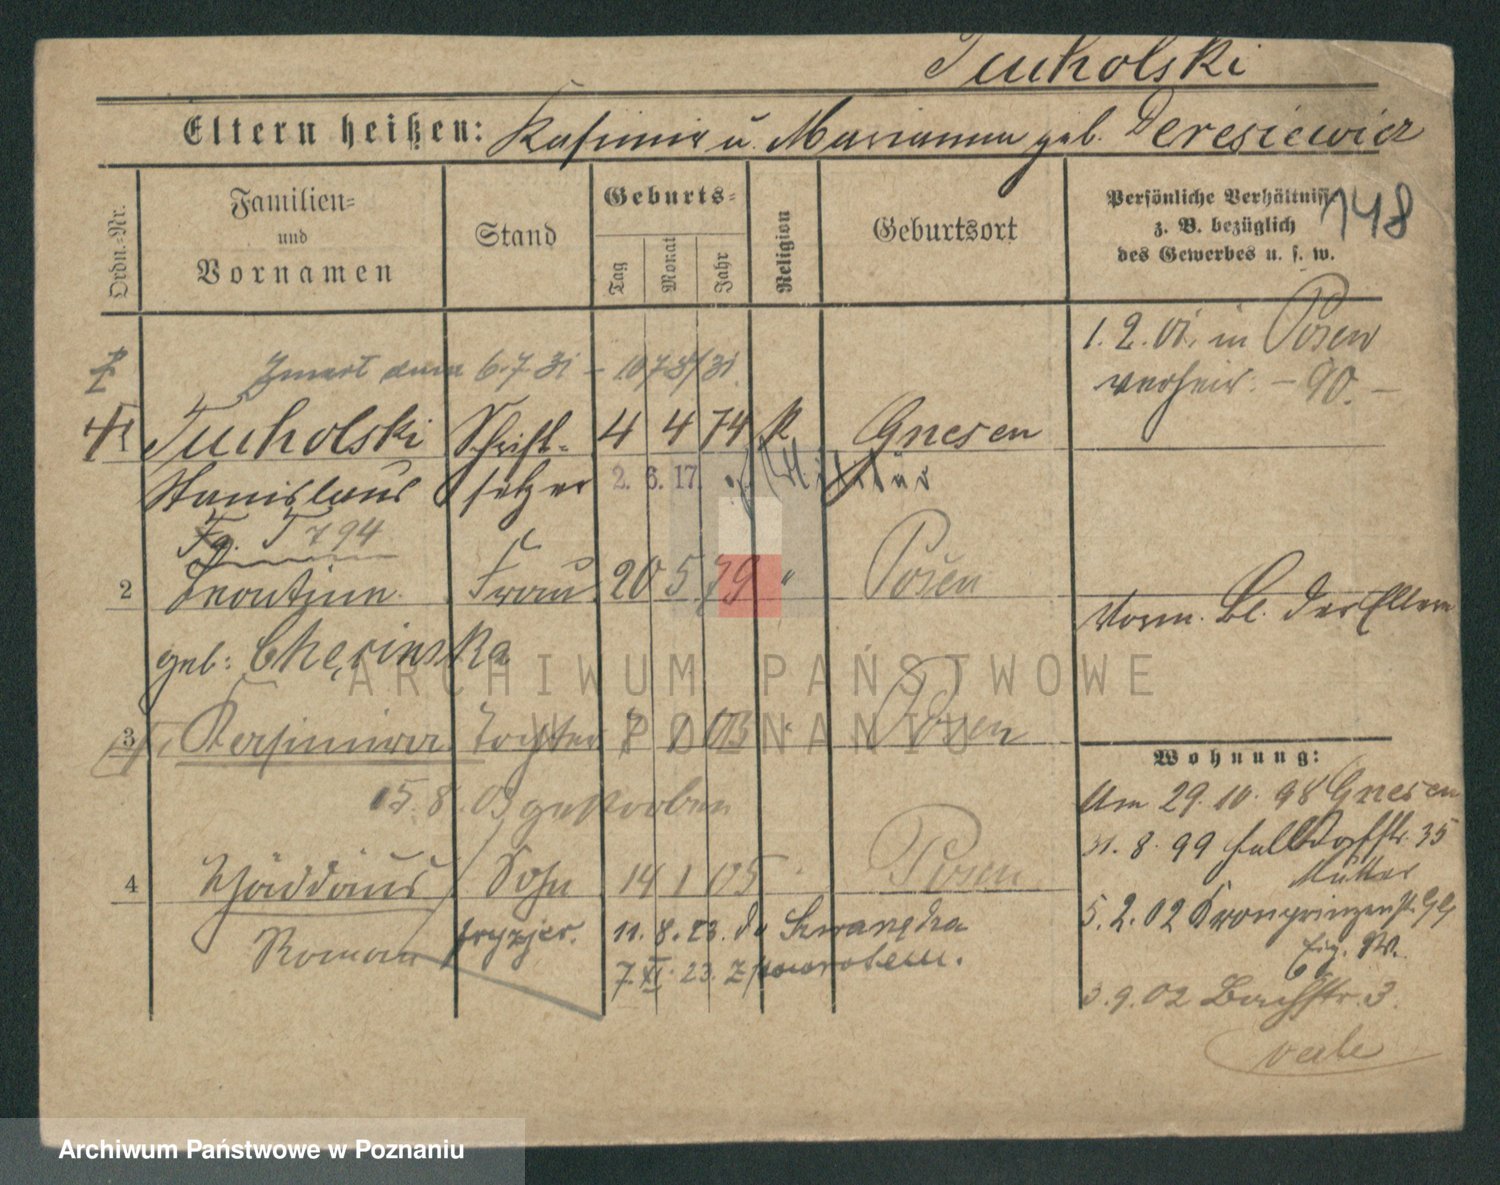 Tucholski
Eltern heißen: Kasimir u. Marianna geb. Deresiewicz
Ordn.-Nr.
Familien-
und
Vornamen
Stand
Geburts-
Tag
Monat
Jahr
Religion
Geburtsort
Persönliche Verhältniss
z. B. bezüglich
des Gewerbes u. s. w.
148
1. 2. 01. in Posen
verheir. - 90. -
Zmarł dnia 6.7.31 - 1078/31
1 Tucholski Schrift- 4 4 74 K Gnesen
Stanislaus setzer 2. 6. 17. Militär
T 794
2 Leontine Frau 20 5 79 " Posen
Vorm. Bl. der Eltern
geb:
3 Kasimira Tochter 7 1 03 " Posen
15. 8. 03 gestorben
4 Thaddäus Sohn 14 1 05 " Posen
Roman fryzjer. 11. 8. 23. do
7. XI. 23. z powrotem.
Wohnung:
Am 29. 10. 98 Gnesen
31. 8. 99 35
Mutter
5. 2. 02 Kronprinzenstr.
Eig. W.
3. 9. 02 Bachstr. 3.
ARCHIWUM PAŃSTWOWE
W POZNANIU
Archiwum Państwowe w Poznaniu